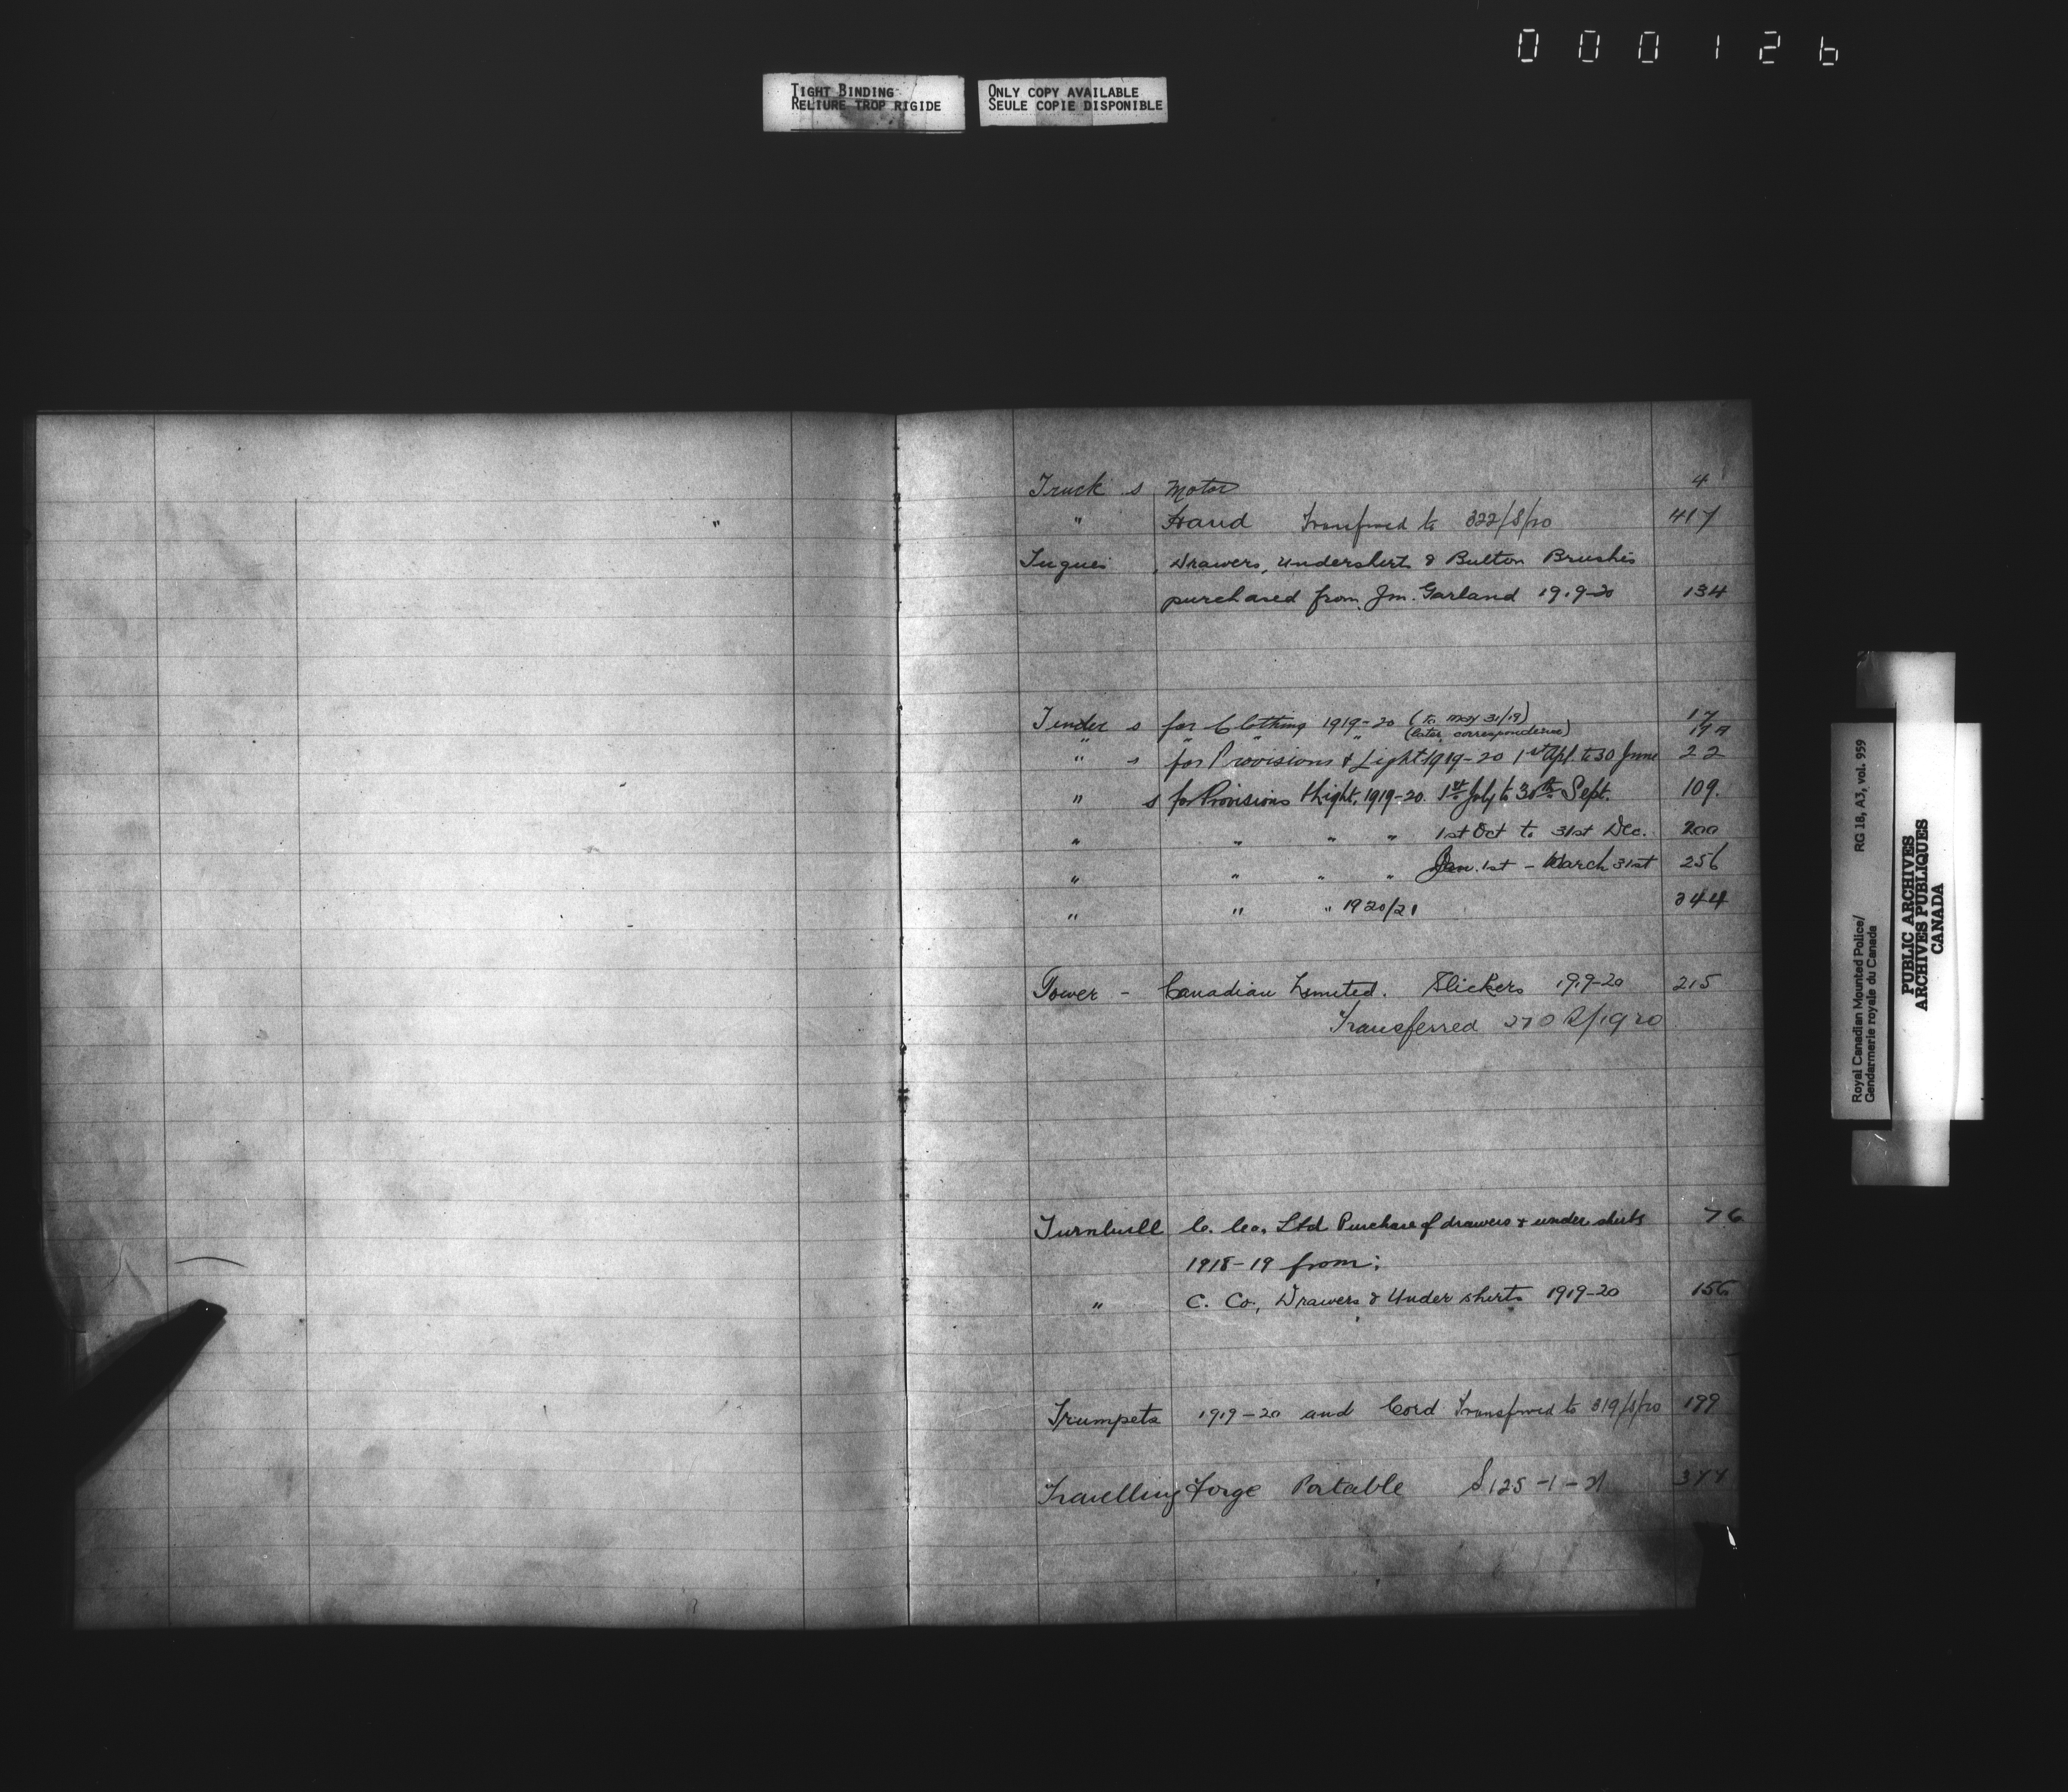 000126
TIGHT BINDING
RELIURE TROP RIGIDE
ONLY COPY AVAILABLE
SEULE COPIE DISPONIBLE
Truck s Motor 4
" Hand Transferred to 322/S/20 417
Tuques, Drawers, undershirts & Button Brushes
purchased from Jm. Garland 1919-20 134
Tender s for Clothing 1919-20 (to may 31/19) 17
" " " " (later correspondence) 19A
" s for Provisions & Light 1919-20 1st Apl. to 30 June 22
" s for Provisions & Light, 1919-20. 1st July to 30th Sept. 109.
" " " " 1st Oct to 31st Dec. 200
" " " " Jan. 1st - March 31st 256
" " " 1920/21 344
Tower - Canadian Limited. Slickers 1919-20 215
Transferred 270 S/1920
Turnbull C. Co. Ltd Purchase of drawers & undershirts 76
1918-19 from;
" C. Co., Drawers & Undershirts 1919-20 156
Trumpets 1919-20 and Cord Transferred to 319/S/20 199
Travelling Forge Portable S125-1-21
Royal Canadian Mounted Police/
Gendarmerie royale du Canada
RG 18, A3, vol. 959
PUBLIC ARCHIVES
ARCHIVES PUBLIQUES
CANADA